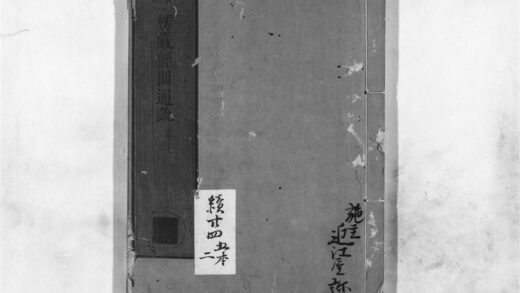 楞嚴經圓通疏
續廿四
五本
二
施主
近江屋